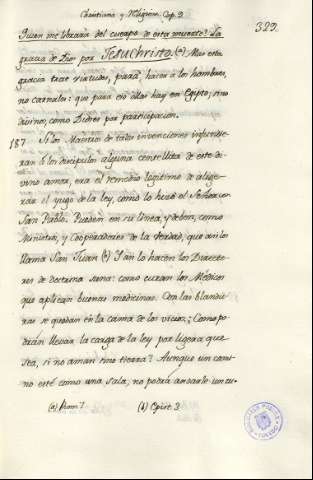 Christiana y Religiosa. Cap. 9
329.
Quien me librará del cuerpo de esta muerte? La
gracia de Dios por JesuChristo. (a) Mas esta
gracia trae virtudes, para hacer a los hombres,
no carnales: que para eso ollas hay en Egypto; sino
divinos, como Dioses por participacion.
187 Si los Maestros de tales invenciones infundie-
ran à los discipulos alguna centellita de este di-
vino amor, era el remedio legitimo de alige-
rar el yugo de la ley, como lo hace el Señor con
San Pablo. Pueden en su linea, y deben, como
Ministros, y Cooperadores de la Verdad, que asi los
llama San Juan (b) Y asi lo hacen los Directo-
res de doctrina sana: como curan los Medicos
que aplican buenas medicinas. Con las blandu-
ras se quedan en la cama de los vicios; Como po-
drian llevar la carga de la ley por ligera que
sea, si no aman sino tierra? Aunque un cami-
no esté como una sala, no podrá andarle un en-
(a) Rom 7 (b) Epist. 3